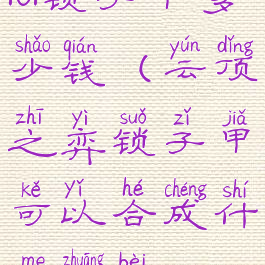 shǎo qián yún dǐng
少钱（云顶
zhī yì suǒ zǐ jiǎ
之弈锁子甲
kě yǐ hé chéng shí
可以合成什
me zhuāng bèi